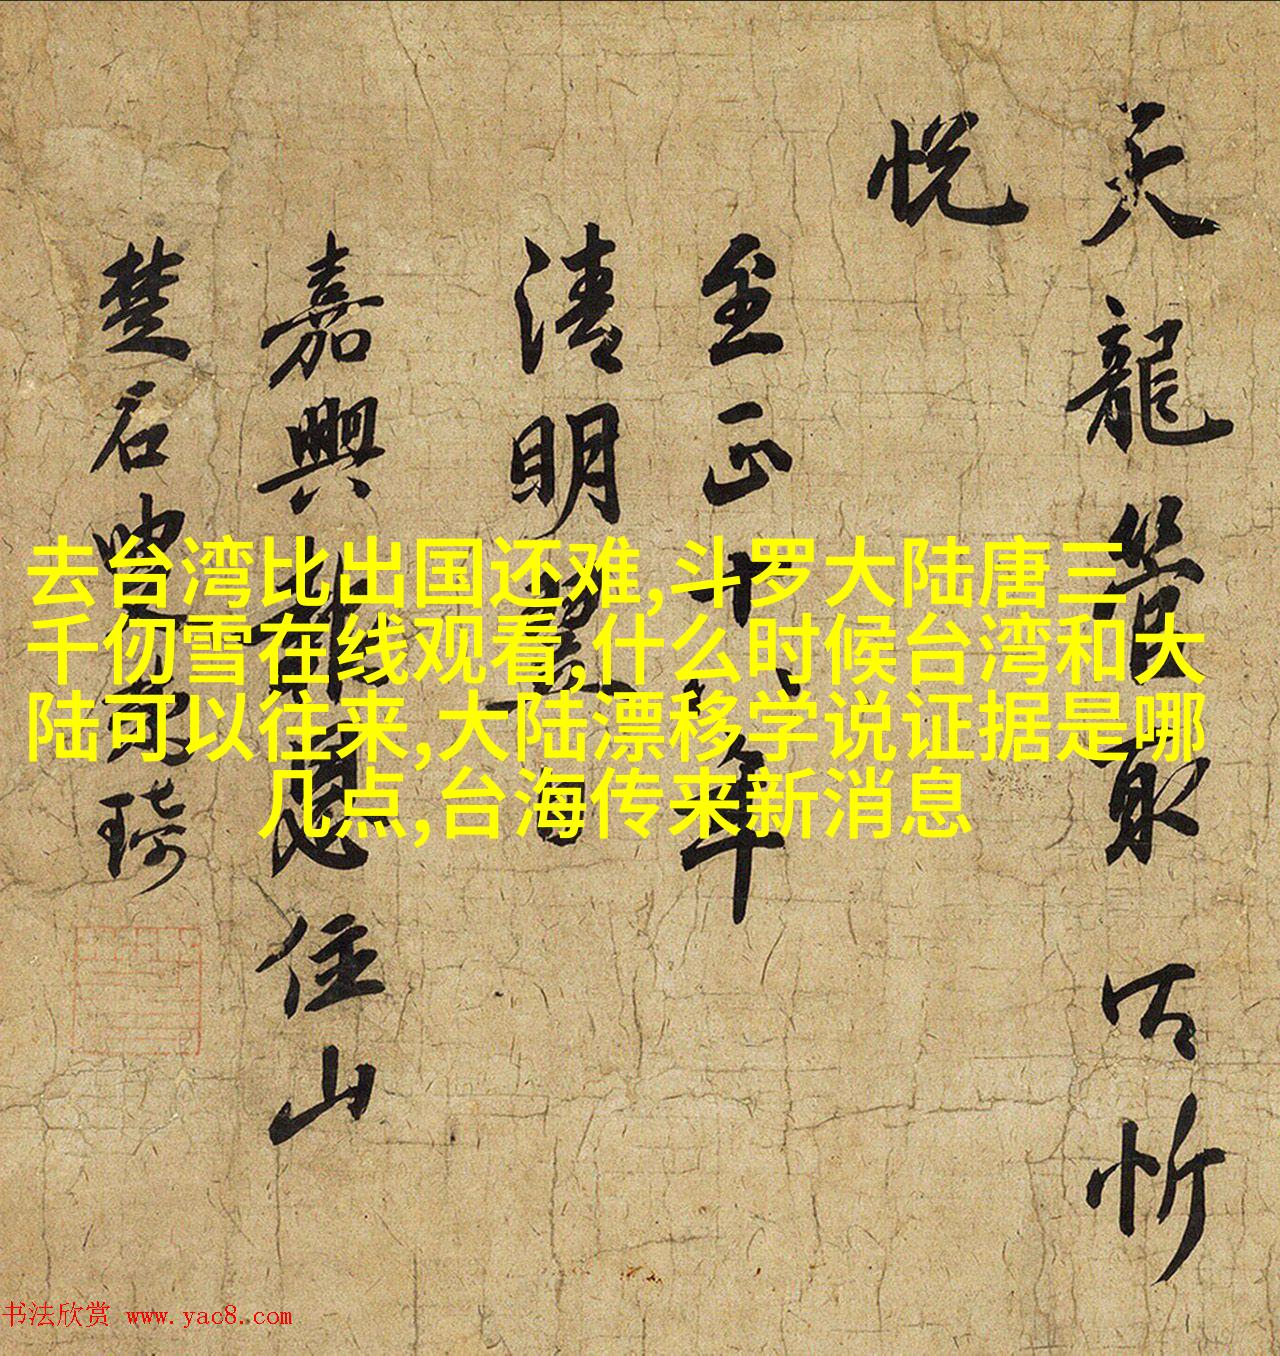 天龍皆取以忻
悅
至正十年
清明日
嘉興報恩住山
楚石琦
去台湾比出国还难,斗罗大陆唐三
千仞雪在线观看,什么时候台湾和大
陆可以往来,大陆漂移学说证据是哪
几点,台海传来新消息
书法欣赏 www.yac8.com